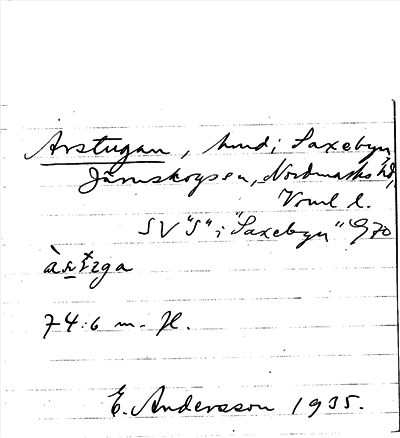 Arstugan, hmd i Saxebyn,
Järnskogsen, Nordmarks hd,
Vrml l.
SV "S" i "Saxebyn" G70
74:6 m. H.
E. Andersson 1935.